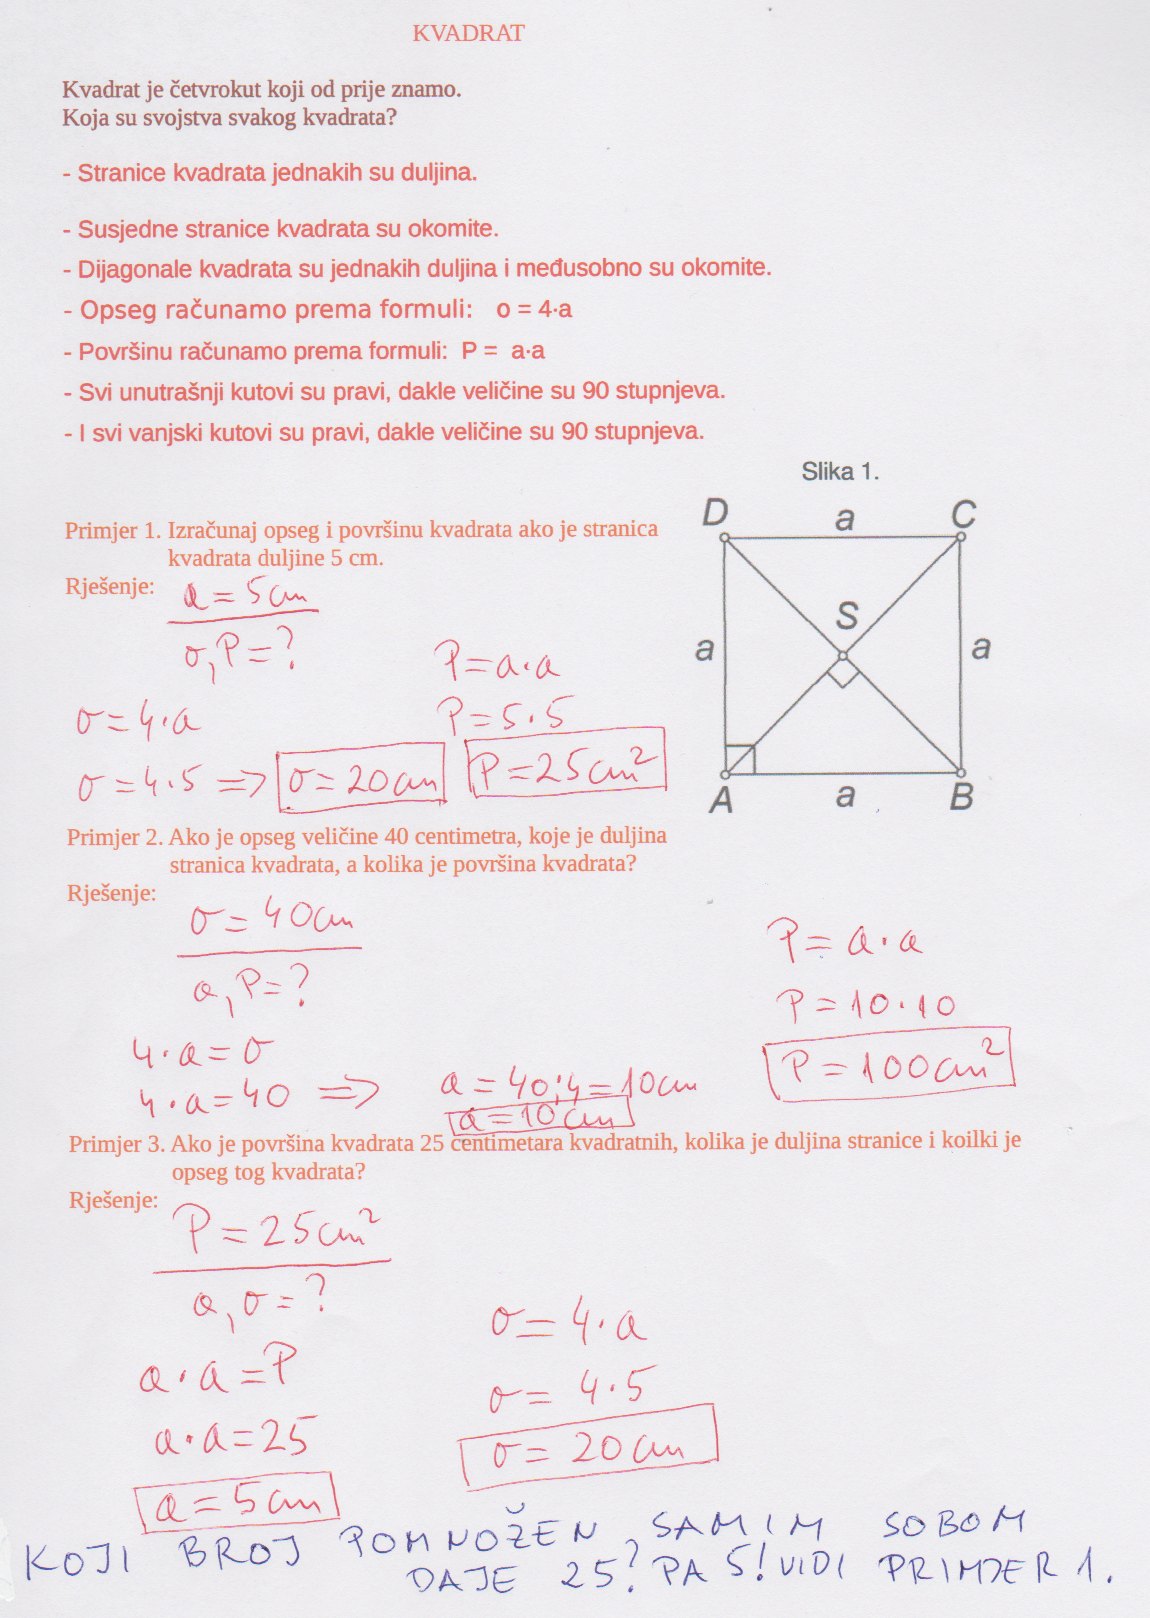 KVADRAT
Kvadrat je četvrokut koji od prije znamo.
Koja su svojstva svakog kvadrata?
- Stranice kvadrata jednakih su duljina.
- Susjedne stranice kvadrata su okomite.
- Dijagonale kvadrata su jednakih duljina i međusobno su okomite.
- Opseg računamo prema formuli: o = 4·a
- Površinu računamo prema formuli: P = a·a
- Svi unutrašnji kutovi su pravi, dakle veličine su 90 stupnjeva.
- I svi vanjski kutovi su pravi, dakle veličine su 90 stupnjeva.
Slika 1.
D a C
S
a a
A a B
Primjer 1. Izračunaj opseg i površinu kvadrata ako je stranica
kvadrata duljine 5 cm.
Rješenje:
a = 5cm
o, P = ?
o = 4·a
o = 4·5 => o = 20cm
P = a·a
P = 5·5
P = 25cm²
Primjer 2. Ako je opseg veličine 40 centimetra, koje je duljina
stranica kvadrata, a kolika je površina kvadrata?
Rješenje:
o = 40cm
a, P = ?
4·a = o
4·a = 40 => a = 40:4 = 10cm
a = 10cm
P = a·a
P = 10·10
P = 100cm²
Primjer 3. Ako je površina kvadrata 25 centimetara kvadratnih, kolika je duljina stranice i koilki je
opseg tog kvadrata?
Rješenje:
P = 25cm²
a, o = ?
a·a = P
a·a = 25
a = 5cm
o = 4·a
o = 4·5
o = 20cm
KOJI BROJ POMNOŽEN SAMIM SOBOM
DAJE 25? PA 5! VIDI PRIMJER 1.